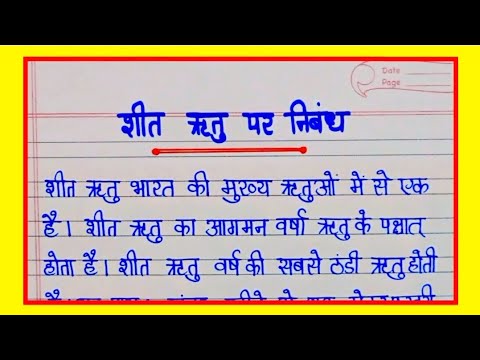 Date
Page
शीत ऋतु पर निबंध
शीत ऋतु भारत की मुख्य ऋतुओं में से एक
है। शीत ऋतु का आगमन वर्षा ऋतु के पश्चात्
होता है। शीत ऋतु वर्ष की सबसे ठंडी ऋतु होती
है।